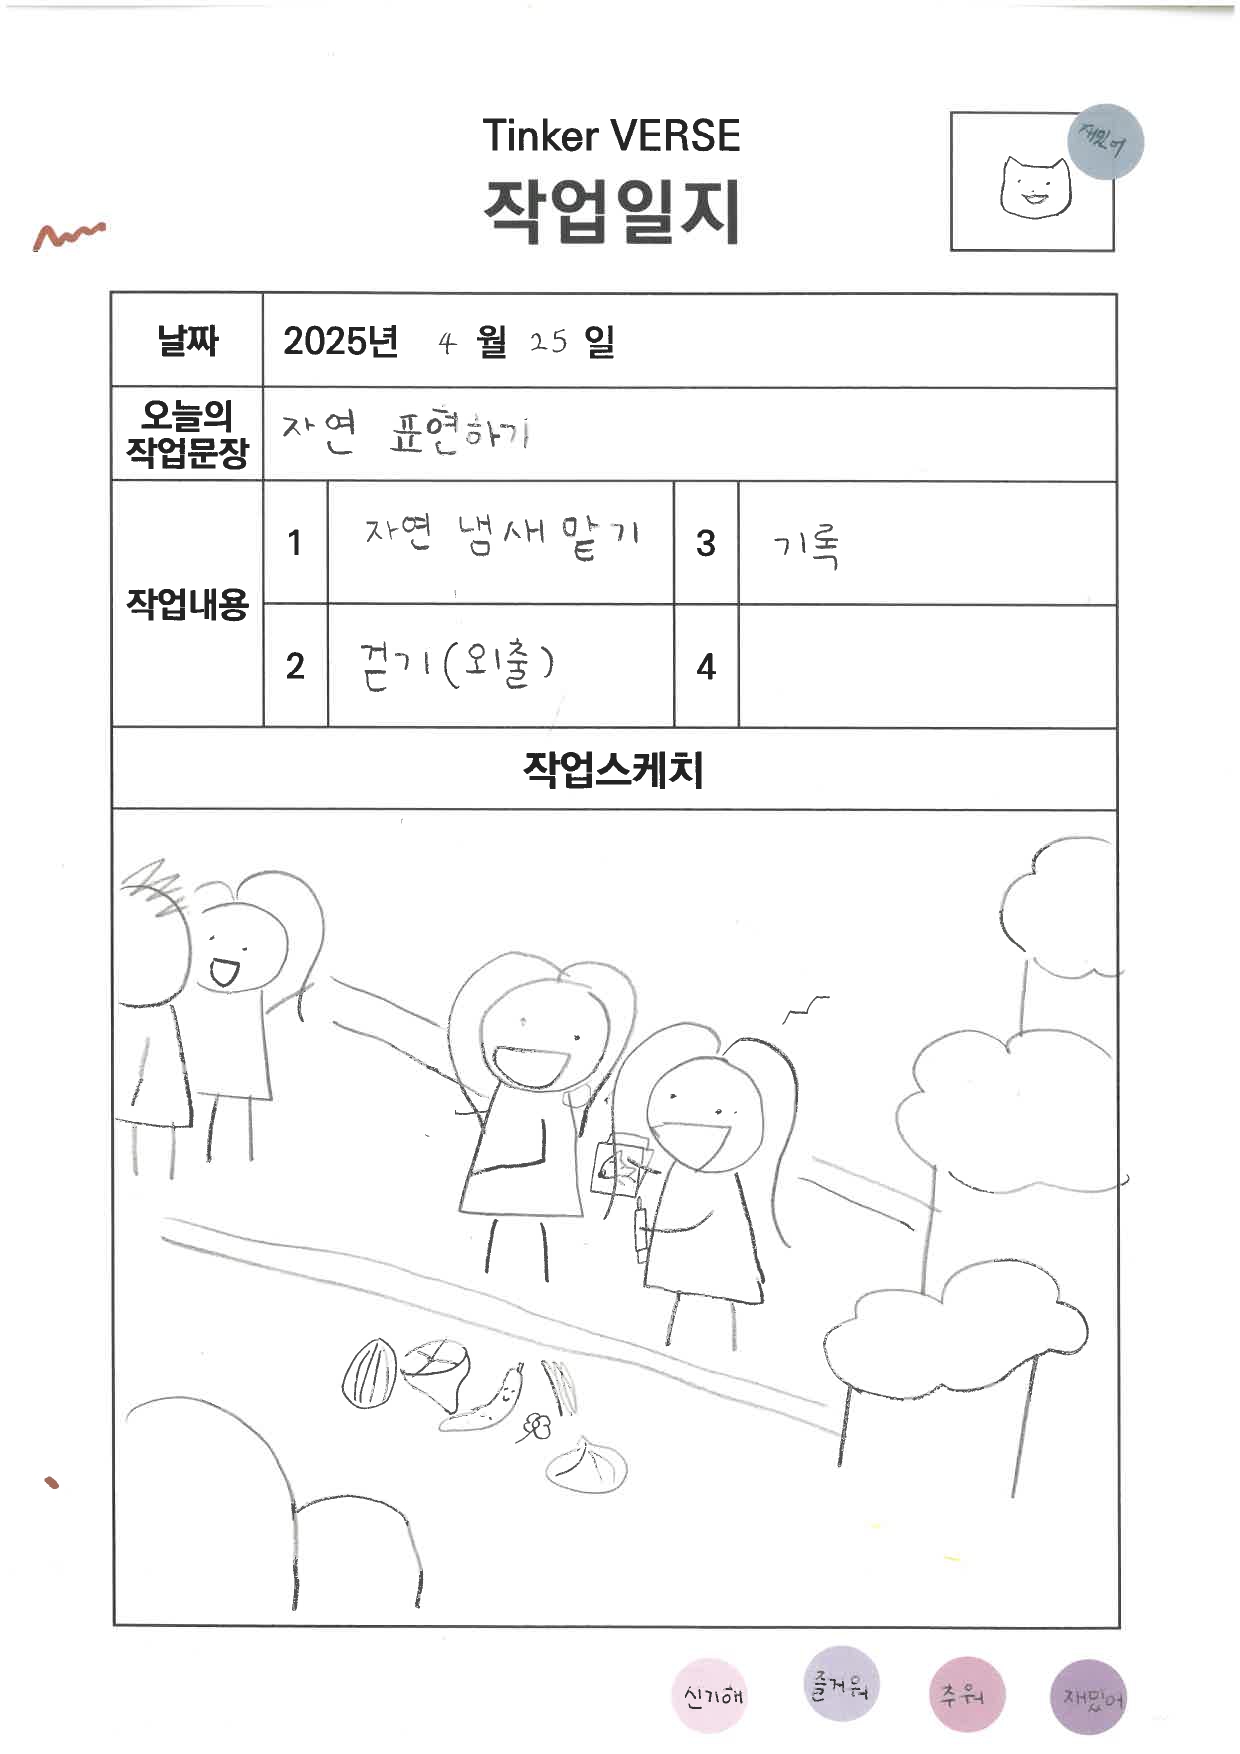 Tinker VERSE
작업일지
재밌어
날짜
2025년 4월 25일
오늘의
작업문장
자연 표현하기
작업내용
1
자연 냄새 맡기
3
기록
2
걷기(외출)
4
작업스케치
신기해
즐거워
추워
재밌어